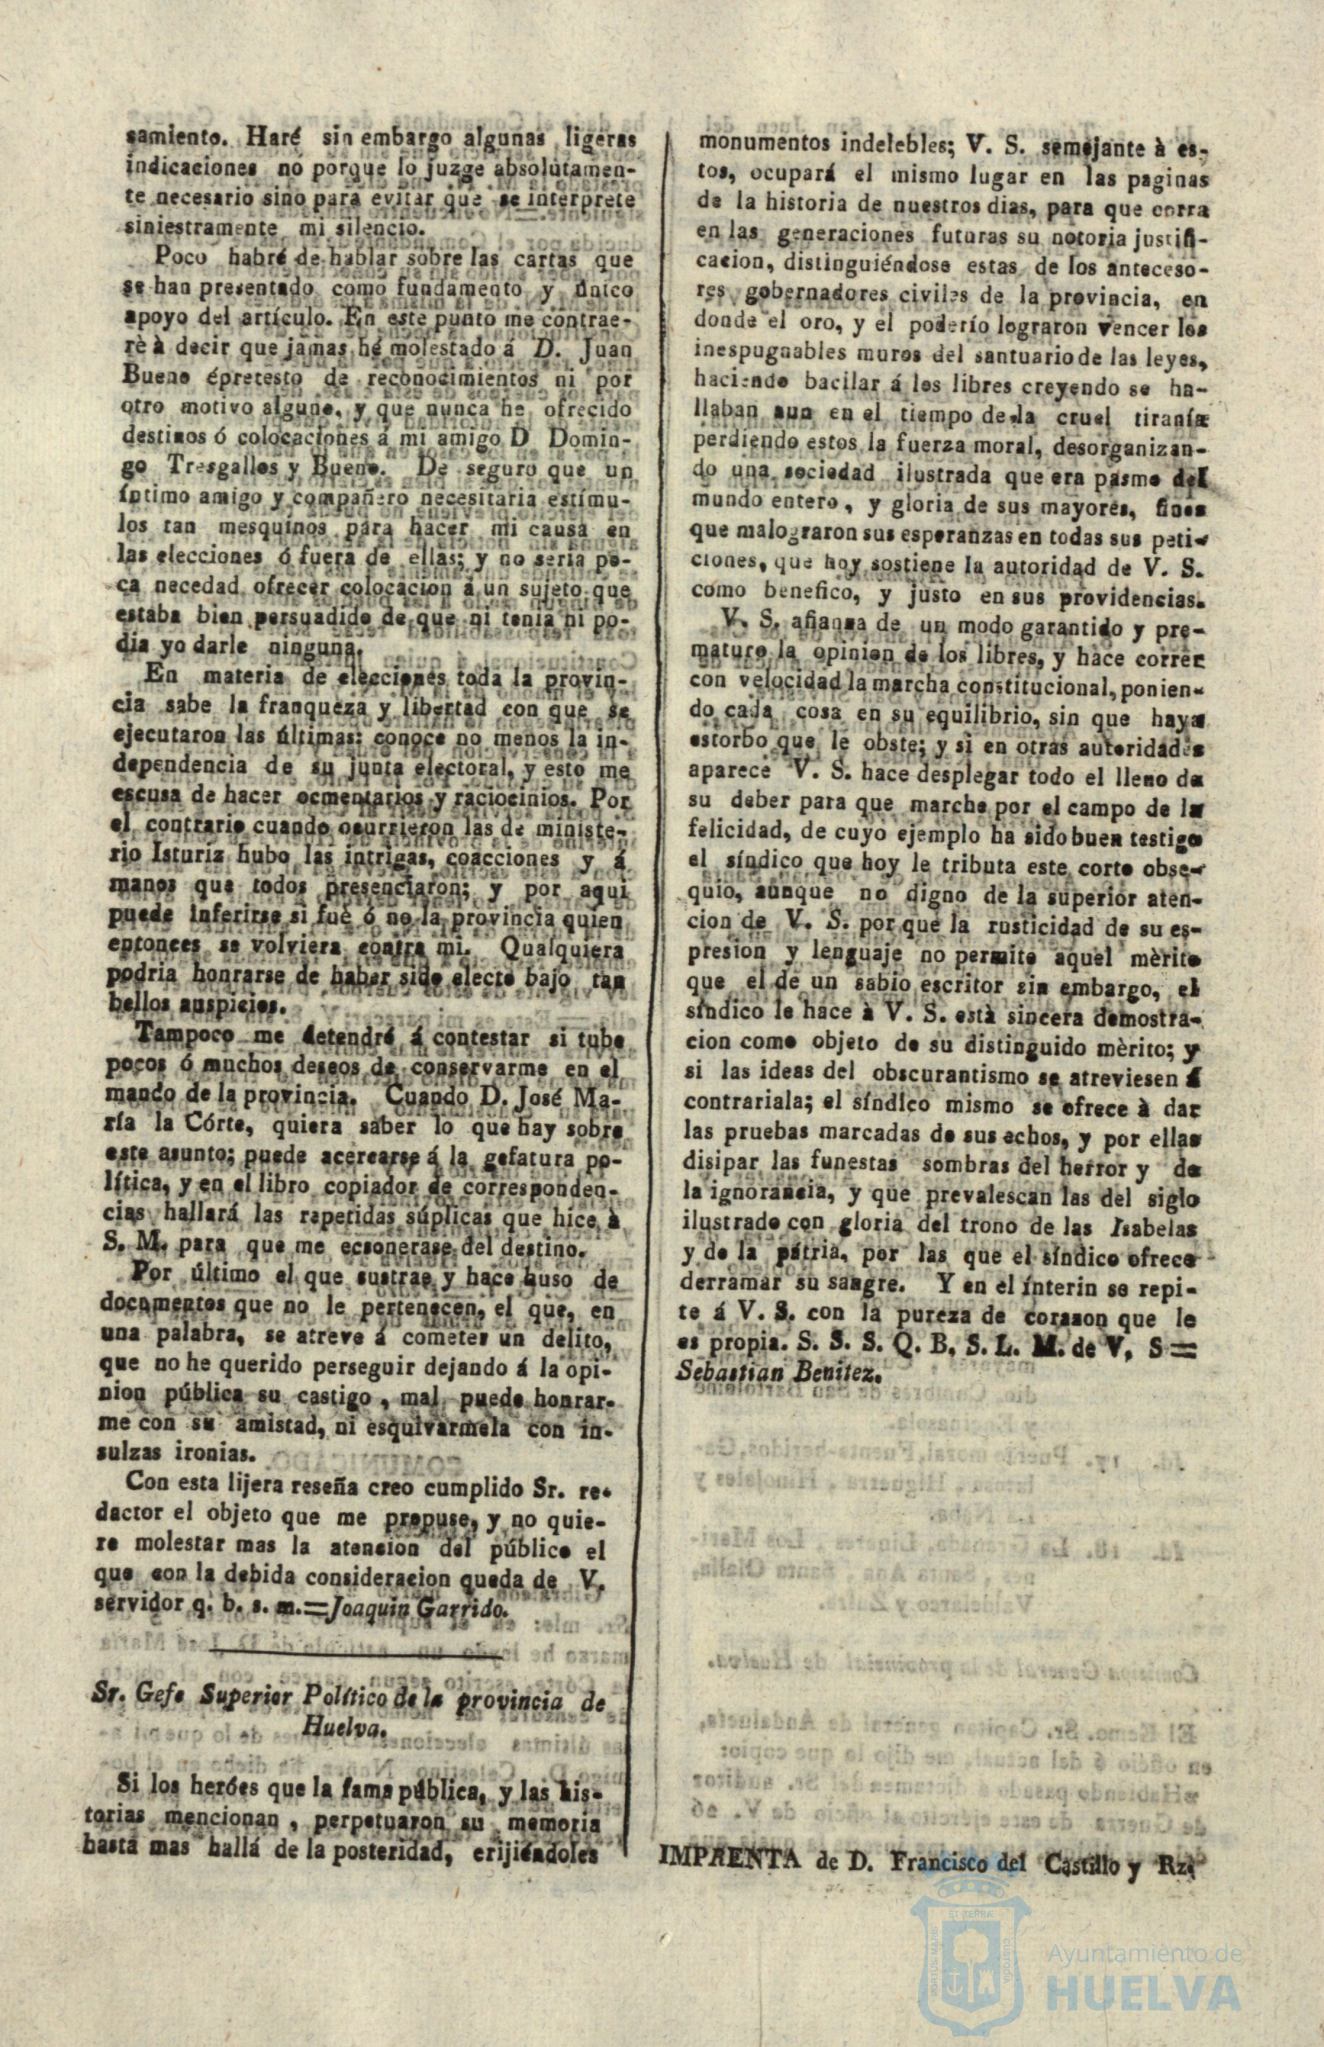 samiento. Haré sin embargo algunas ligeras
indicaciones no porque lo juzge absolutamen-
te necesario sino para evitar que se interprete
siniestramente mi silencio.
Poco habré de hablar sobre las cartas que
se han presentado como fundamento y único
apoyo del artículo. En este punto me contrae-
rè à decir que jamas hé molestado á D. Juan
Bueno épretesto de reconocimientos ni por
otro motivo alguno, y que nunca he ofrecido
destinos ó colocaciones á mi amigo D Domin-
go Tresgallos y Bueno. De seguro que un
íntimo amigo y compañero necesitaria estímu-
los tan mesquinos para hacer mi causa en
las elecciones ó fuera de ellas; y no seria po-
ca necedad ofrecer colocacion á un sujeto que
estaba bien persuadido de que ni tenia ni po-
dia yo darle ninguna.
En materia de elecciones toda la provin-
cia sabe la franqueza y libertad con que se
ejecutaron las últimas: conoce no menos la in-
dependencia de su junta electoral, y esto me
escusa de hacer ocmentarios y raciocinios. Por
el contrario cuando ocurrieron las de ministe-
rio Isturiz hubo las intrigas, coacciones y á
manos que todos presenciaron; y por aqui
puede inferirse si fué ó no la provincia quien
entonces se volviera contra mi. Qualquiera
podria honrarse de haber sido electo bajo tan
bellos auspicios.
Tampoco me detendré á contestar si tube
pocos ó muchos deseos de conservarme en el
mando de la provincia. Cuando D. José Ma-
ría la Córte, quiera saber lo que hay sobre
este asunto; puede acercarse á la gefatura po-
lítica, y en el libro copiador de corresponden-
cias hallará las repetidas súplicas que hice à
S. M. para que me ecsonerase del destino.
Por último el que sustrae y hace huso de
documentos que no le pertenecen, el que, en
una palabra, se atreve á cometer un delito,
que no he querido perseguir dejando á la opi-
nion pública su castigo, mal puede honrar-
me con su amistad, ni esquivarmela con in-
sulzas ironias.
Con esta lijera reseña creo cumplido Sr. re-
dactor el objeto que me propuse, y no quie-
re molestar mas la atencion del público el
que con la debida consideracion queda de V.
servidor q. b. s. m.=Joaquin Garrido.
Sr. Gefe Superior Político de la provincia de
Huelva.
Si los heróes que la fama pública, y las his-
torias mencionan, perpetuaron su memoria
hasta mas hallá de la posteridad, erijiéndoles
monumentos indelebles; V. S. semejante à es-
tos, ocupará el mismo lugar en las paginas
de la historia de nuestros dias, para que corra
en las generaciones futuras su notoria justifi-
cacion, distinguiéndose estas de los anteceso-
res gobernadores civiles de la provincia, en
donde el oro, y el poderío lograron vencer los
inespugnables muros del santuario de las leyes,
haciendo bacilar á los libres creyendo se ha-
llaban aun en el tiempo de la cruel tiranía
perdiendo estos la fuerza moral, desorganizan-
do una sociedad ilustrada que era pasmo del
mundo entero, y gloria de sus mayores, fines
que malograron sus esperanzas en todas sus peti-
ciones, que hoy sostiene la autoridad de V. S.
como benefico, y justo en sus providencias.
V. S. afianza de un modo garantido y pre-
maturo la opinion de los libres, y hace correr
con velocidad la marcha constitucional, ponien-
do cada cosa en su equilibrio, sin que haya
estorbo que le obste; y si en otras autoridades
aparece V. S. hace desplegar todo el lleno de
su deber para que marche por el campo de la
felicidad, de cuyo ejemplo ha sido buen testigo
el síndico que hoy le tributa este corto obse-
quio, aunque no digno de la superior aten-
cion de V. S. por que la rusticidad de su es-
presion y lenguaje no permite aquel mèrito
que el de un sabio escritor sin embargo, el
síndico le hace à V. S. està sincera demostra-
cion como objeto de su distinguido mèrito; y
si las ideas del obscurantismo se atreviesen á
contrariala; el síndico mismo se ofrece à dar
las pruebas marcadas de sus echos, y por ellas
disipar las funestas sombras del herror y de
la ignorancia, y que prevalescan las del siglo
ilustrado con gloria del trono de las Isabelas
y de la pátria, por las que el síndico ofrece
derramar su sangre. Y en el ínterin se repi-
te á V. S. con la pureza de corason que le
es propia. S. S. S. Q. B. S. L. M. de V. S=
Sebastian Benitez.
IMPRENTA de D. Francisco del Castillo y Rz.
Ayuntamiento de
HUELVA